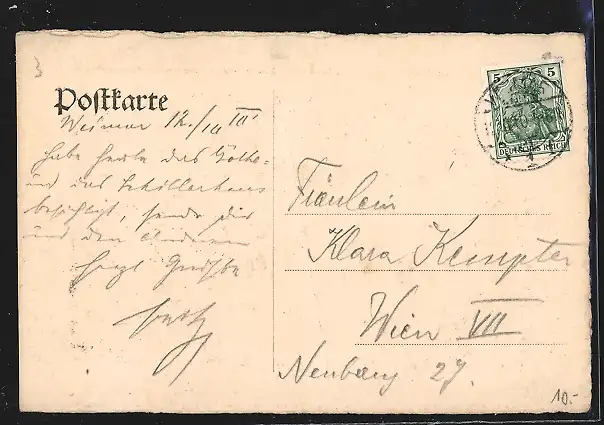 3
Postkarte
Weimar 12./10 III.
habe heute das Göthe-
und das Schillerhaus
besichtigt, sende Dir
und den anderen
herzl Grüße
Fritz
5 5
DEUTSCHES REICH
Fräulein
Klara Kempter
Wien VII
Neubaug 27.
10.-